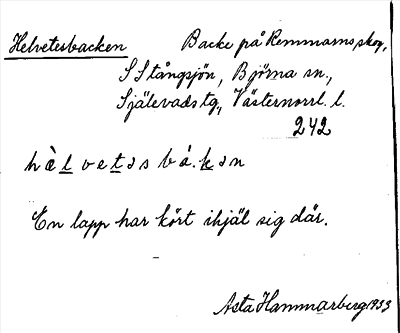 Helvetesbacken Backe på Remmarns skog,
S Stångsjön, Björna sn.,
Själevads tg., Västernorrl. l.
242
hὲl̲vet̲əsbá.k̲ən
En lapp har kört ihjäl sig där.
Asta Hammarberg 1933